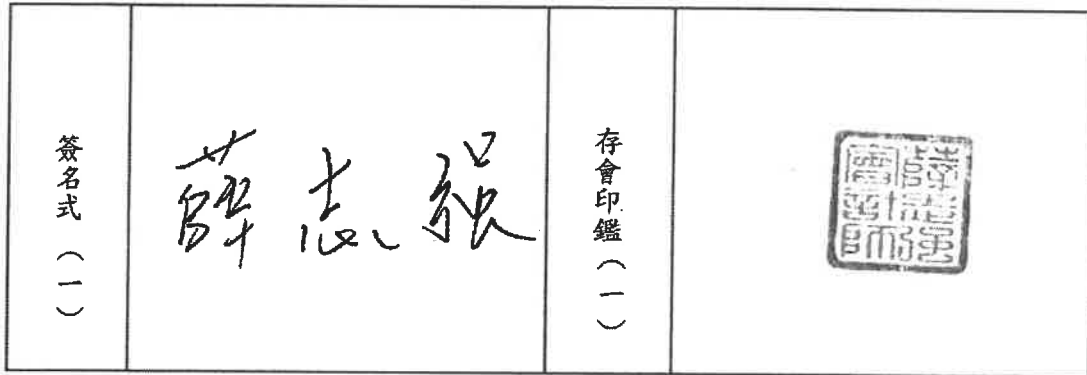 簽名式(一)
薛志強
存會印鑑(一)
薛志強
會計師